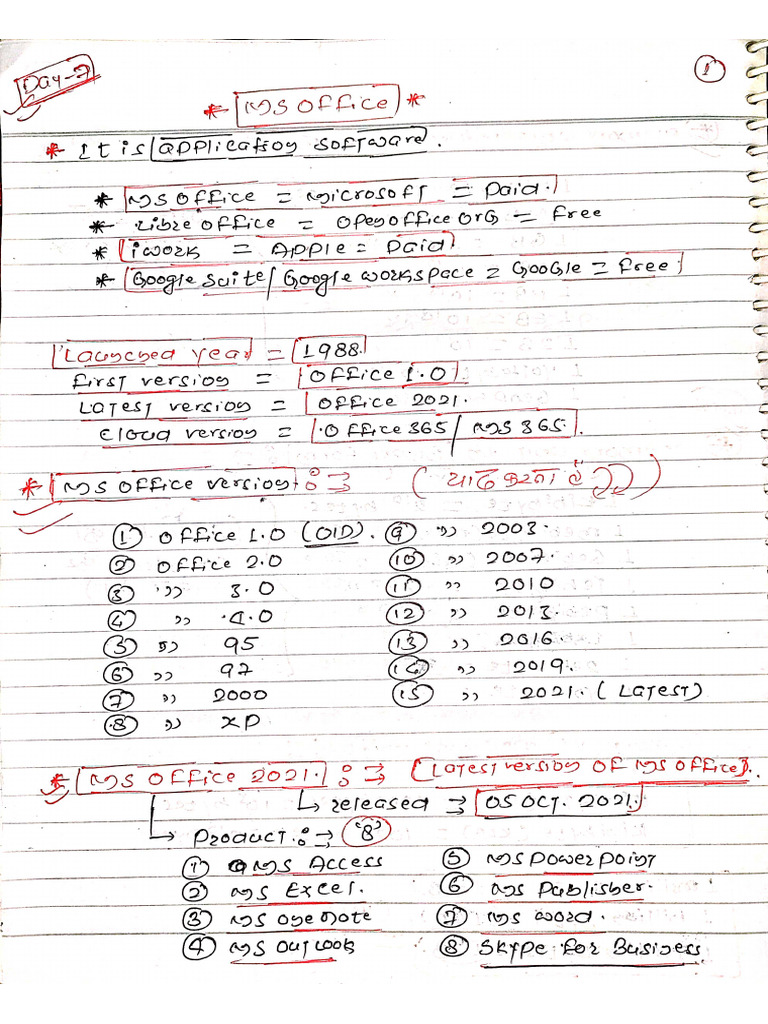 Day-7
1
* MS Office *
* It is application software.
* MS Office = Microsoft = Paid.
* Libre Office = Openoffice org = Free
* iwork = Apple = Paid
* Google Suite / Google Workspace = Google = Free.
Launched Year = 1988.
First version = Office 1.0.
Latest version = Office 2021.
Cloud version = Office 365 / MS 365.
* MS Office version :⇒ (याद करना है)
① Office 1.0 (OLD).
② Office 2.0
③ ,, 3.0
④ ,, 4.0
⑤ ,, 95
⑥ ,, 97
⑦ ,, 2000
⑧ ,, XP
⑨ ,, 2003.
⑩ ,, 2007.
⑪ ,, 2010
⑫ ,, 2013.
⑬ ,, 2016.
⑭ ,, 2019.
⑮ ,, 2021. (Latest)
* MS Office 2021. :⇒ (Latest version of MS Office).
↳ released ⇒ 05 OCT. 2021.
→ Product :⇒ "8"
① MS Access
② MS Excel.
③ MS onenote
④ MS Outlook
⑤ MS PowerPoint
⑥ MS Publisher.
⑦ MS word.
⑧ Skype for Business